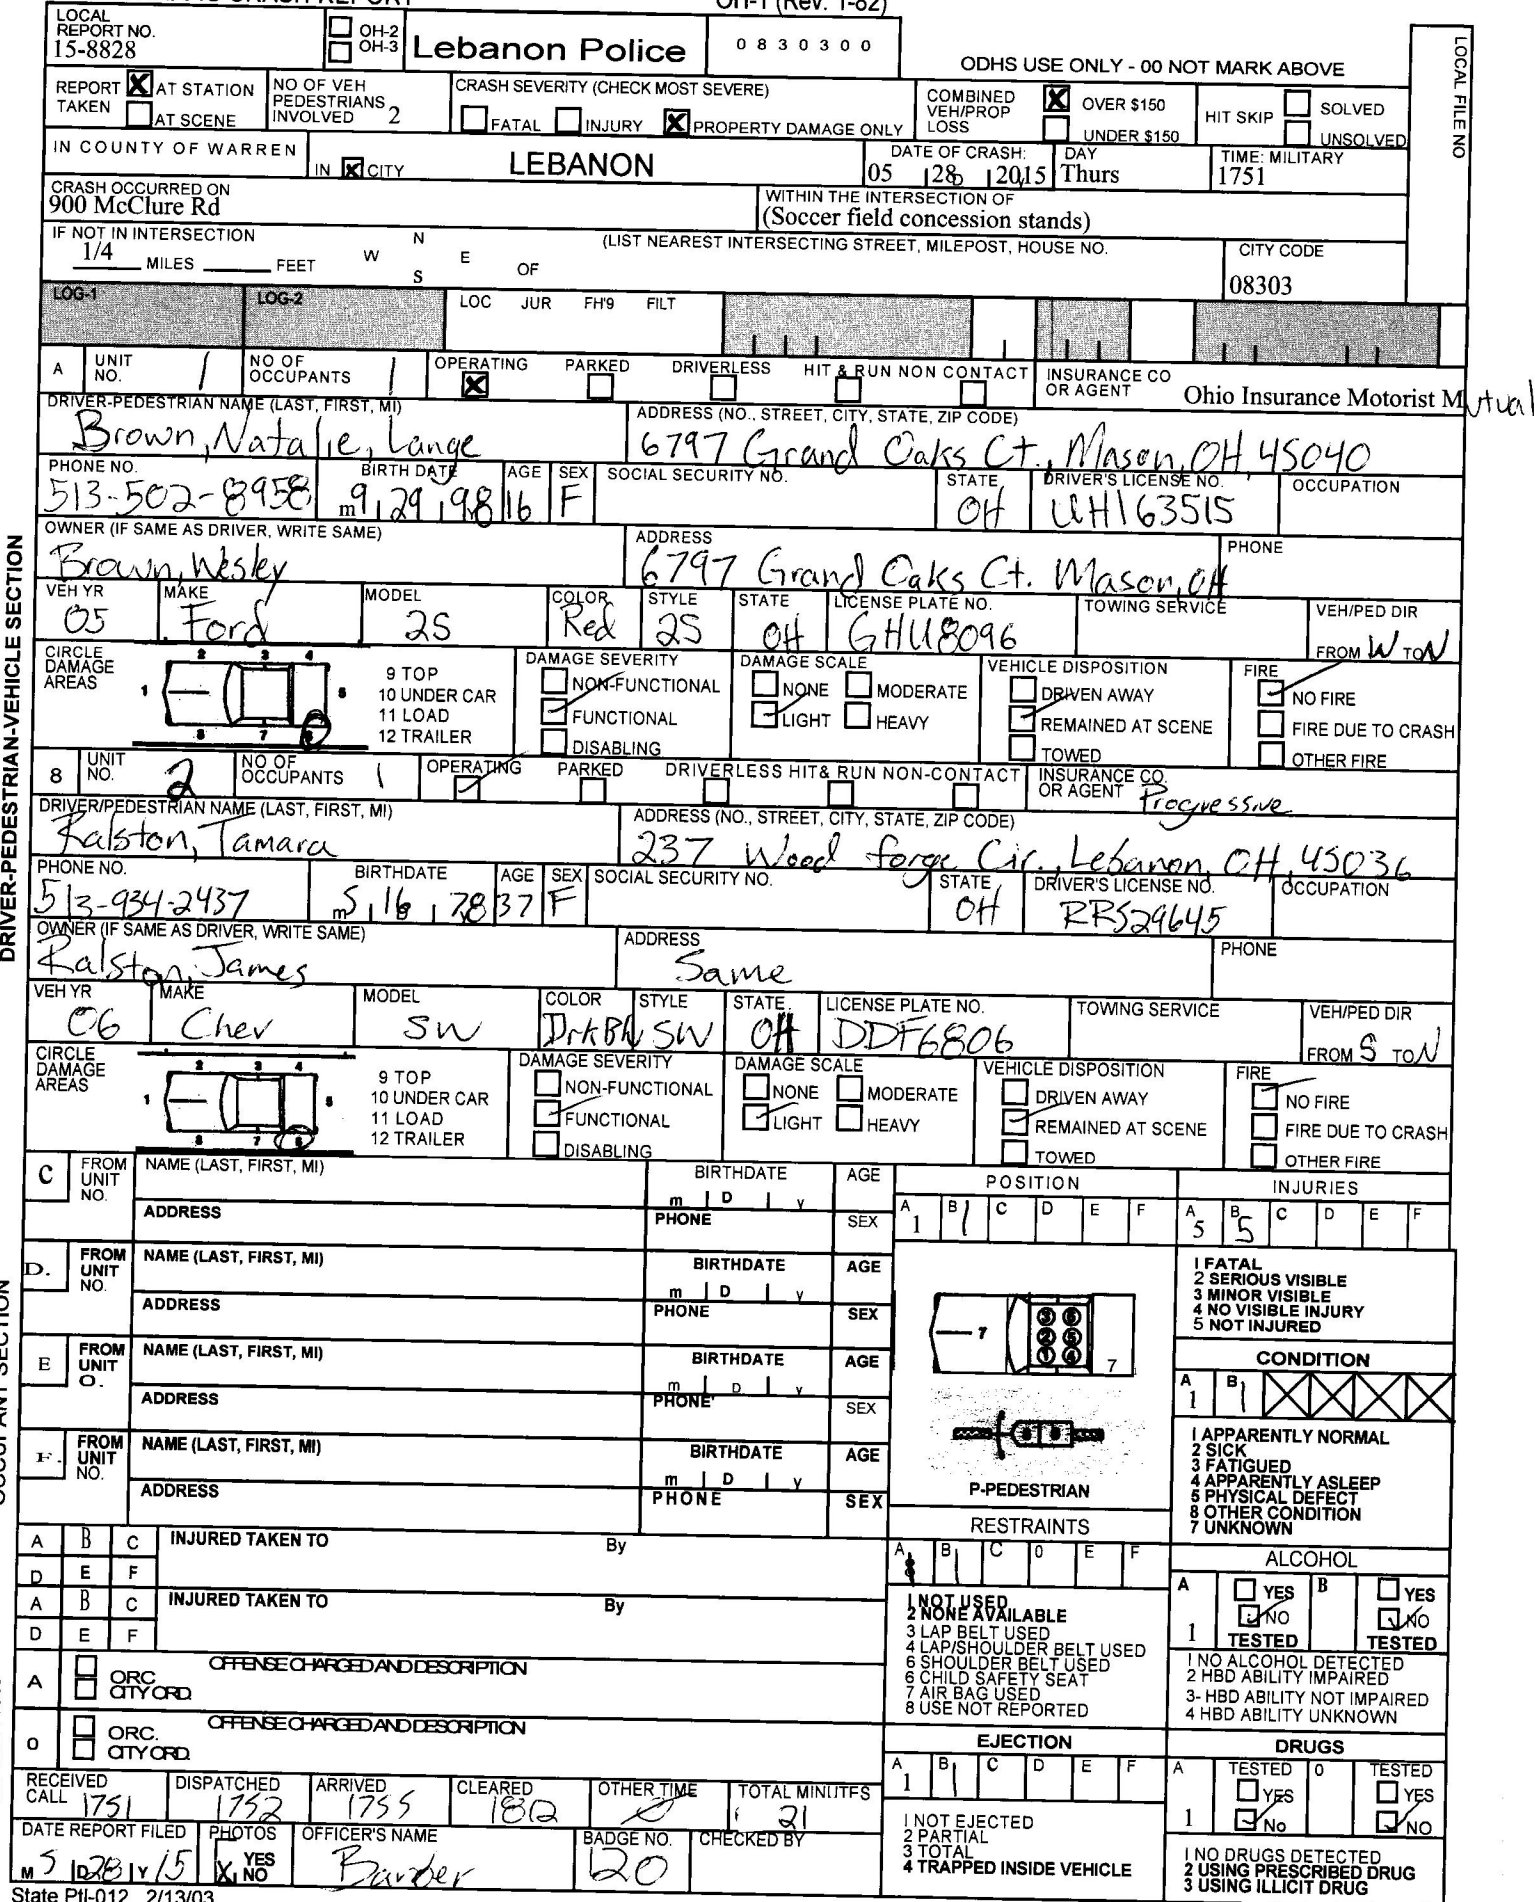 OH-1 (Rev. 1-82)
LOCAL REPORT NO.
15-8828
OH-2
OH-3
Lebanon Police
0 8 3 0 3 0 0
ODHS USE ONLY - 00 NOT MARK ABOVE
LOCAL FILE NO
REPORT TAKEN
X AT STATION
AT SCENE
NO OF VEH PEDESTRIANS INVOLVED 2
CRASH SEVERITY (CHECK MOST SEVERE)
FATAL INJURY X PROPERTY DAMAGE ONLY
COMBINED VEH/PROP LOSS
X OVER $150
UNDER $150
HIT SKIP
SOLVED
UNSOLVED
IN COUNTY OF WARREN
IN X CITY
LEBANON
DATE OF CRASH:
05 28 2015
DAY
Thurs
TIME: MILITARY
1751
CRASH OCCURRED ON
900 McClure Rd
WITHIN THE INTERSECTION OF
(Soccer field concession stands)
IF NOT IN INTERSECTION
1/4 MILES FEET
N
W E
S
OF
(LIST NEAREST INTERSECTING STREET, MILEPOST, HOUSE NO.
CITY CODE
08303
LOG-1 LOG-2 LOC JUR FH'9 FILT
A UNIT NO. 1
NO OF OCCUPANTS 1
OPERATING PARKED DRIVERLESS HIT & RUN NON CONTACT
X
INSURANCE CO OR AGENT Ohio Insurance Motorist Mutual
DRIVER-PEDESTRIAN-VEHICLE SECTION
DRIVER-PEDESTRIAN NAME (LAST, FIRST, MI)
Brown, Natalie, Lange
ADDRESS (NO., STREET, CITY, STATE, ZIP CODE)
6797 Grand Oaks Ct., Mason, OH, 45040
PHONE NO.
513-502-8958
BIRTH DATE
m 9 29 98
AGE
16
SEX
F
SOCIAL SECURITY NO.
STATE
OH
DRIVER'S LICENSE NO.
UH163515
OCCUPATION
OWNER (IF SAME AS DRIVER, WRITE SAME)
Brown, Wesley
ADDRESS
6797 Grand Oaks Ct. Mason, OH
PHONE
VEH YR
05
MAKE
Ford
MODEL
2S
COLOR
Red
STYLE
2S
STATE
OH
LICENSE PLATE NO.
GHU8096
TOWING SERVICE
VEH/PED DIR
FROM W TO N
CIRCLE DAMAGE AREAS
9 TOP
10 UNDER CAR
11 LOAD
12 TRAILER
DAMAGE SEVERITY
NON-FUNCTIONAL
FUNCTIONAL
DISABLING
DAMAGE SCALE
NONE MODERATE
LIGHT HEAVY
VEHICLE DISPOSITION
DRIVEN AWAY
REMAINED AT SCENE
TOWED
FIRE
NO FIRE
FIRE DUE TO CRASH
OTHER FIRE
8 UNIT NO. 2
NO OF OCCUPANTS 1
OPERATING PARKED DRIVERLESS HIT& RUN NON-CONTACT
INSURANCE CO. OR AGENT Progressive
DRIVER/PEDESTRIAN NAME (LAST, FIRST, MI)
Ralston, Tamara
ADDRESS (NO., STREET, CITY, STATE, ZIP CODE)
237 Wood forge Cir., Lebanon, OH, 45036
PHONE NO.
513-934-2437
BIRTHDATE
m 5 16 78
AGE
37
SEX
F
SOCIAL SECURITY NO.
STATE
OH
DRIVER'S LICENSE NO.
RR529645
OCCUPATION
OWNER (IF SAME AS DRIVER, WRITE SAME)
Ralston, James
ADDRESS
Same
PHONE
VEH YR
06
MAKE
Chev
MODEL
SW
COLOR
DrkBlu
STYLE
SW
STATE
OH
LICENSE PLATE NO.
DDF6806
TOWING SERVICE
VEH/PED DIR
FROM S TO N
CIRCLE DAMAGE AREAS
9 TOP
10 UNDER CAR
11 LOAD
12 TRAILER
DAMAGE SEVERITY
NON-FUNCTIONAL
FUNCTIONAL
DISABLING
DAMAGE SCALE
NONE MODERATE
LIGHT HEAVY
VEHICLE DISPOSITION
DRIVEN AWAY
REMAINED AT SCENE
TOWED
FIRE
NO FIRE
FIRE DUE TO CRASH
OTHER FIRE
C FROM UNIT NO.
NAME (LAST, FIRST, MI) BIRTHDATE AGE
m D y
ADDRESS PHONE SEX
D. FROM UNIT NO.
NAME (LAST, FIRST, MI) BIRTHDATE AGE
m D y
ADDRESS PHONE SEX
E FROM UNIT O.
NAME (LAST, FIRST, MI) BIRTHDATE AGE
m D y
ADDRESS PHONE SEX
F. FROM UNIT NO.
NAME (LAST, FIRST, MI) BIRTHDATE AGE
m D y
ADDRESS PHONE SEX
POSITION
A 1 B 1 C D E F
P-PEDESTRIAN
INJURIES
A 5 B 5 C D E F
1 FATAL
2 SERIOUS VISIBLE
3 MINOR VISIBLE
4 NO VISIBLE INJURY
5 NOT INJURED
CONDITION
A 1 B 1
1 APPARENTLY NORMAL
2 SICK
3 FATIGUED
4 APPARENTLY ASLEEP
5 PHYSICAL DEFECT
8 OTHER CONDITION
7 UNKNOWN
A B C INJURED TAKEN TO By
D E F
A B C INJURED TAKEN TO By
D E F
A ORC. CITY ORD. OFFENSE CHARGED AND DESCRIPTION
0 ORC. CITY ORD. OFFENSE CHARGED AND DESCRIPTION
RESTRAINTS
A B 1 C 0 E F
1 NOT USED
2 NONE AVAILABLE
3 LAP BELT USED
4 LAP/SHOULDER BELT USED
6 SHOULDER BELT USED
6 CHILD SAFETY SEAT
7 AIR BAG USED
8 USE NOT REPORTED
ALCOHOL
A 1 YES NO TESTED
B YES NO TESTED
1 NO ALCOHOL DETECTED
2 HBD ABILITY IMPAIRED
3- HBD ABILITY NOT IMPAIRED
4 HBD ABILITY UNKNOWN
EJECTION
A 1 B 1 C D E F
1 NOT EJECTED
2 PARTIAL
3 TOTAL
4 TRAPPED INSIDE VEHICLE
DRUGS
A 1 TESTED YES No
0 TESTED YES NO
1 NO DRUGS DETECTED
2 USING PRESCRIBED DRUG
3 USING ILLICIT DRUG
RECEIVED CALL 1751
DISPATCHED 1752
ARRIVED 1755
CLEARED 1812
OTHER TIME
TOTAL MINUTES 21
DATE REPORT FILED
M 5 D 28 Y 15
PHOTOS
YES
X NO
OFFICER'S NAME
Barber
BADGE NO.
120
CHECKED BY
State Ptl-012 2/13/03